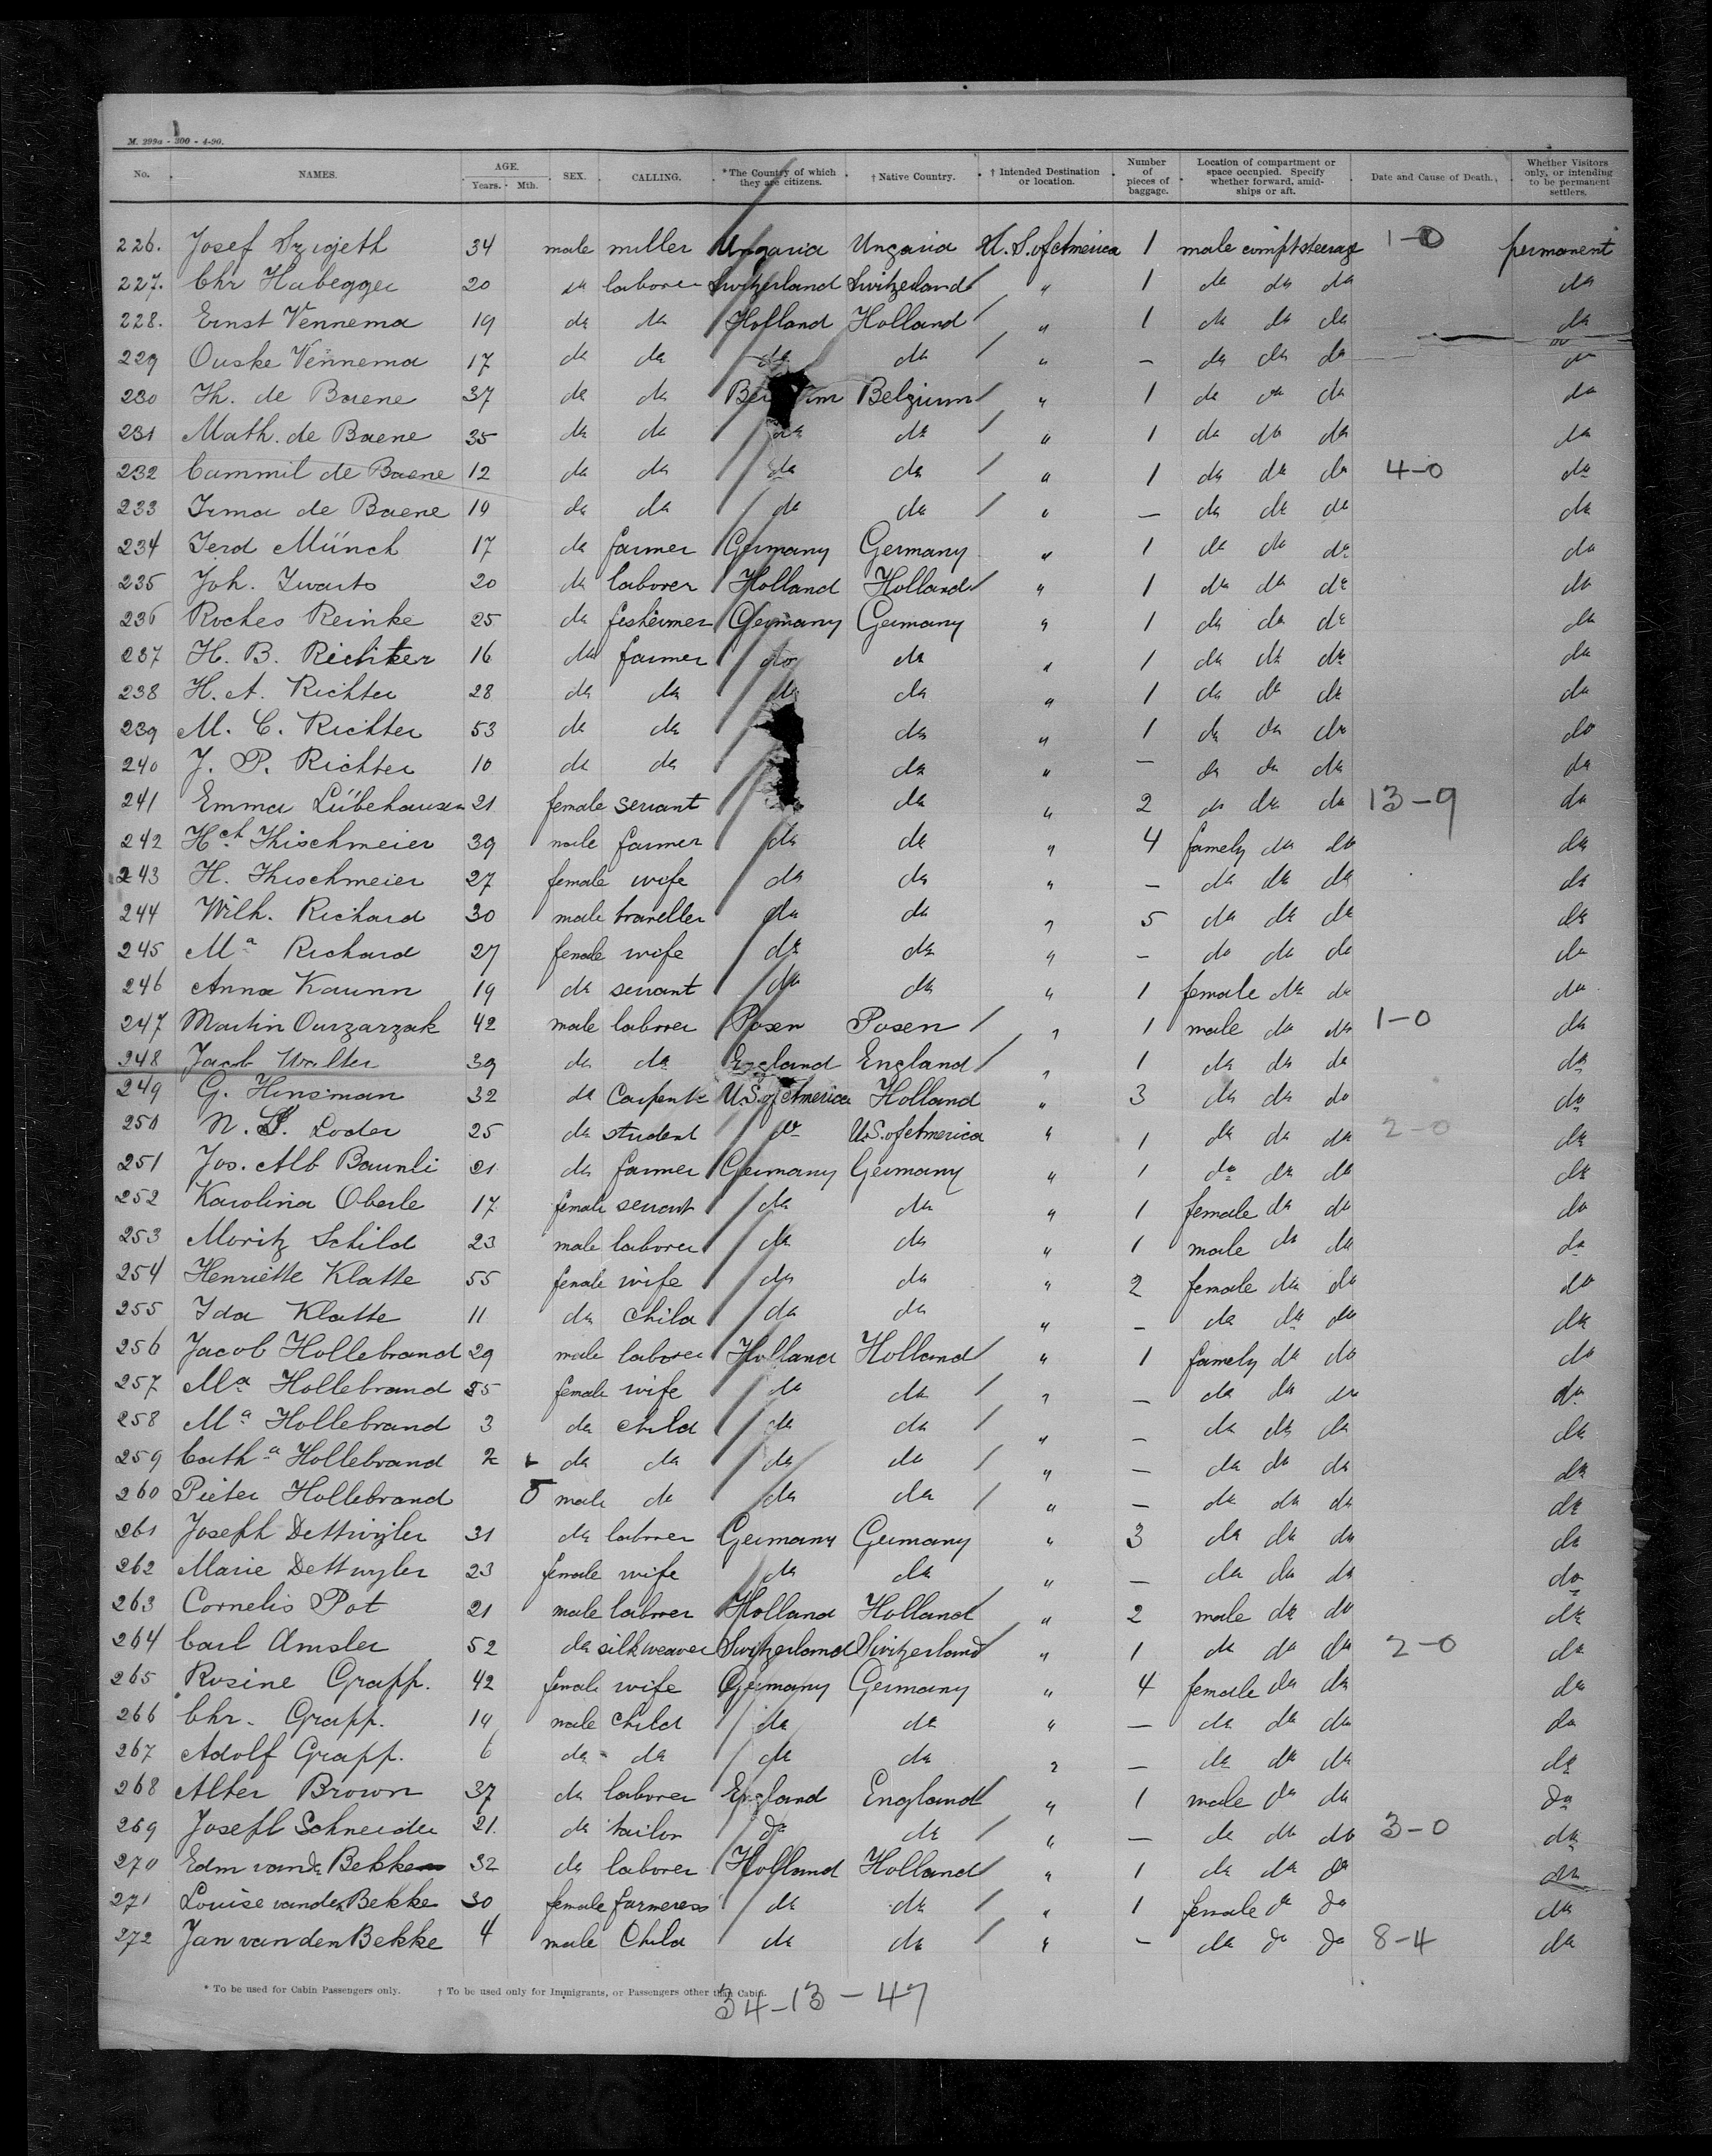 M. 299a - 200 - 4-90.
No. NAMES. AGE. Years. Mth. SEX. CALLING. *The Country of which they are citizens. † Native Country. † Intended Destination or location. Number of pieces of baggage. Location of compartment or space occupied. Specify whether forward, amidships or aft. Date and Cause of Death. Whether Visitors only, or intending to be permanent settlers.
226. Josef Szigeth 34 male miller Ungaria Ungaria U. S. of America 1 male compt steerage 1-0 permanent
227. Chr Habegger 20 do laborer Switzerland Switzerland " 1 do do do do
228. Ernst Vennema 19 do do Holland Holland " 1 do do do do
229 Ouske Vennema 17 do do do do " — do do do do
230 Th. de Baene 37 do do Belgium " 1 do do do do
231 Math. de Baene 35 do do do do " 1 do do do do
232 Cammil de Baene 12 do do do do " 1 do do do 4-0 do
233 Irma de Baene 19 do do do do " — do do do do
234 Ferd Münch 17 do farmer Germany Germany " 1 do do do do
235 Joh. Zwarts 20 do laborer Holland Holland " 1 do do do do
236 Roches Reinke 25 do Germany Germany " 1 do do do do
237 H. B. Richter 16 do farmer do do " 1 do do do do
238 H. A. Richter 28 do do do do " 1 do do do do
239 M. C. Richter 53 do do do " 1 do do do do
240 J. P. Richter 10 do do do " — do do do do
241 Emma Lübehausen 21 female servant do " 2 do do do 13-9 do
242 Hch Thischmeier 39 male farmer do do " 4 famely do do do
243 H. Thischmeier 27 female wife do do " — do do do do
244 Wilh. Richard 30 male traveller do do " 5 do do do do
245 Ma Richard 27 female wife do do " — do do do do
246 Anna Kaunn 19 do servant do do " 1 female do do do
247 Martin Ourzarzak 42 male laborer Posen Posen " 1 male do do 1-0 do
248 Jacob Walter 39 do do England England " 1 do do do do
249 G. Hinsman 32 do Carpentr U.S. of America Holland " 3 do do do do
250 N. S. Loder 25 do student do U.S. of America " 1 do do do 2-0 do
251 Jos. Alb Baunli 21 do farmer Germany Germany " 1 do do do do
252 Karolina Oberle 17 female servant do do " 1 female do do do
253 Moritz Schild 23 male laborer do do " 1 male do do do
254 Henriette Klatte 55 female wife do do " 2 female do do do
255 Ida Klatte 11 do child do do " — do do do do
256 Jacob Hollebrand 29 male laborer Holland Holland " 1 famely do do do
257 Ma Hollebrand 25 female wife do do " — do do do do
258 Ma Hollebrand 3 do child do do " — do do do do
259 Catha Hollebrand 2 do do do do " — do do do do
260 Pieter Hollebrand 5 male do do do " — do do do do
261 Joseph Dettwyler 31 do laborer Germany Germany " 3 do do do do
262 Marie Dettwyler 23 female wife do do " — do do do do
263 Cornelis Pot 21 male laborer Holland Holland " 2 male do do do
264 Carl Amsler 52 do silkweaver Switzerland Switzerland " 1 do do do 2-0 do
265 Rosine Grapp. 42 female wife Germany Germany " 4 female do do do
266 Chr. Grapp. 19 male child do do " — do do do do
267 Adolf Grapp. 6 do do do do " — do do do do
268 Alter Brown 37 do laborer England England " 1 male do do do
269 Joseph Schneider 21 do tailor do do " — do do do 3-0 do
270 Edm vande Bekke 32 do laborer Holland Holland " 1 do do do do
271 Louise vanden Bekke 30 female farmeress do do " 1 female do do do
272 Jan van den Bekke 4 male Child do do " — do do do 8-4 do
* To be used for Cabin Passengers only. † To be used only for Immigrants, or Passengers other than Cabin.
34-13-47